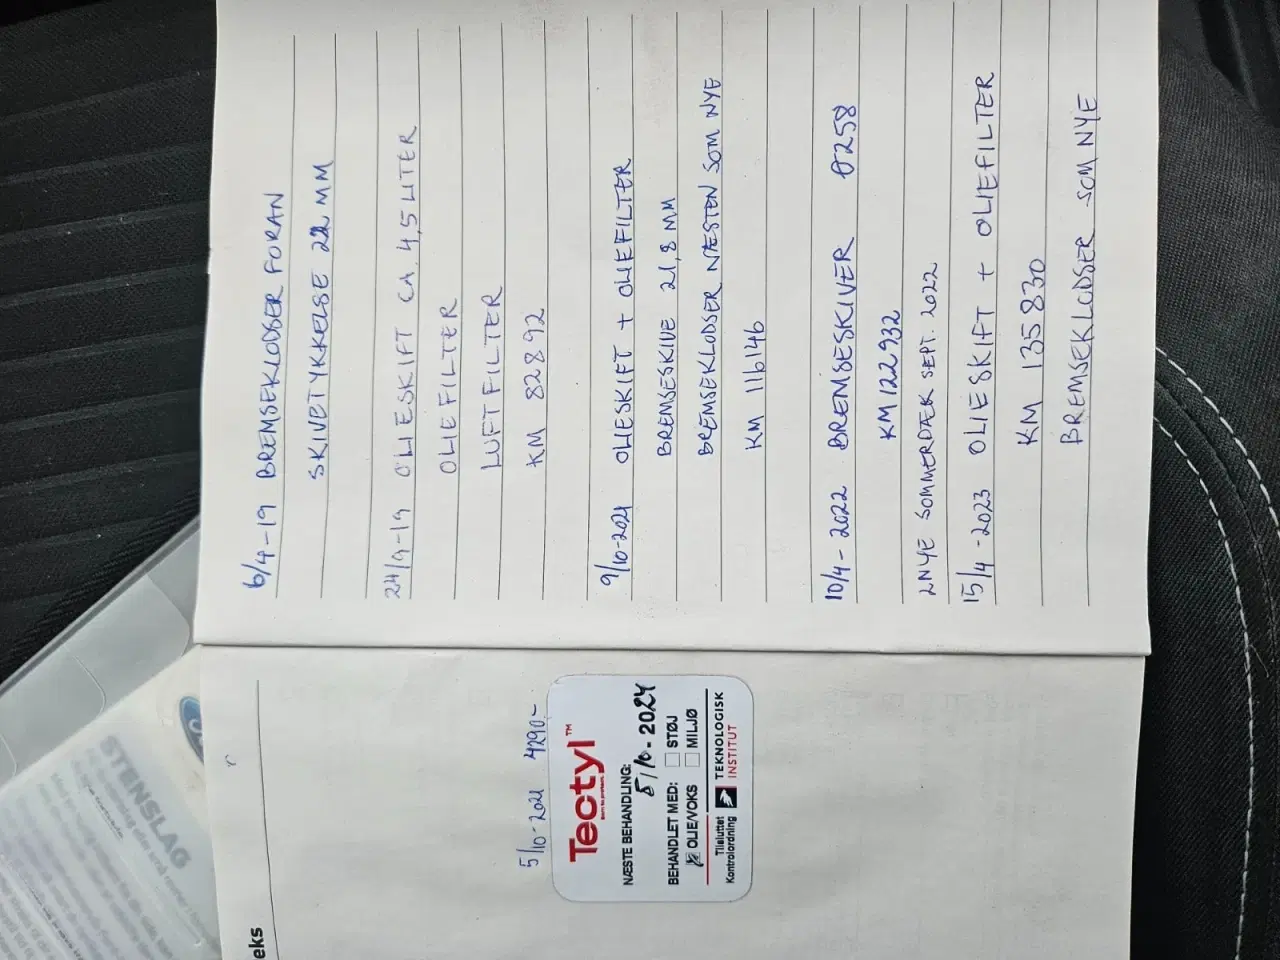 6/4-19 BREMSEKLODSER FORAN
SKIVETYKKELSE 22 MM
24/9-19 OLIESKIFT CA. 4,5 LITER
OLIEFILTER
LUFTFILTER
KM 82892
9/10-2021 OLIESKIFT + OLIEFILTER
BREMSESKIVE 21,8 MM
BREMSEKLODSER NÆSTEN SOM NYE
KM 116146
10/4-2022 BREMSESKIVER 0258
KM 122932
2 NYE SOMMERDÆK SEPT. 2022
15/4-2023 OLIESKIFT + OLIEFILTER
KM 135830
BREMSEKLODSER SOM NYE
eks
5/10-2021 4290,-
Tectyl™
NÆSTE BEHANDLING:
5/10-2024
BEHANDLET MED: STØJ
OLIE/VOKS MILJØ
Tilsluttet
Kontrolordning
TEKNOLOGISK
INSTITUT
STENSLAG